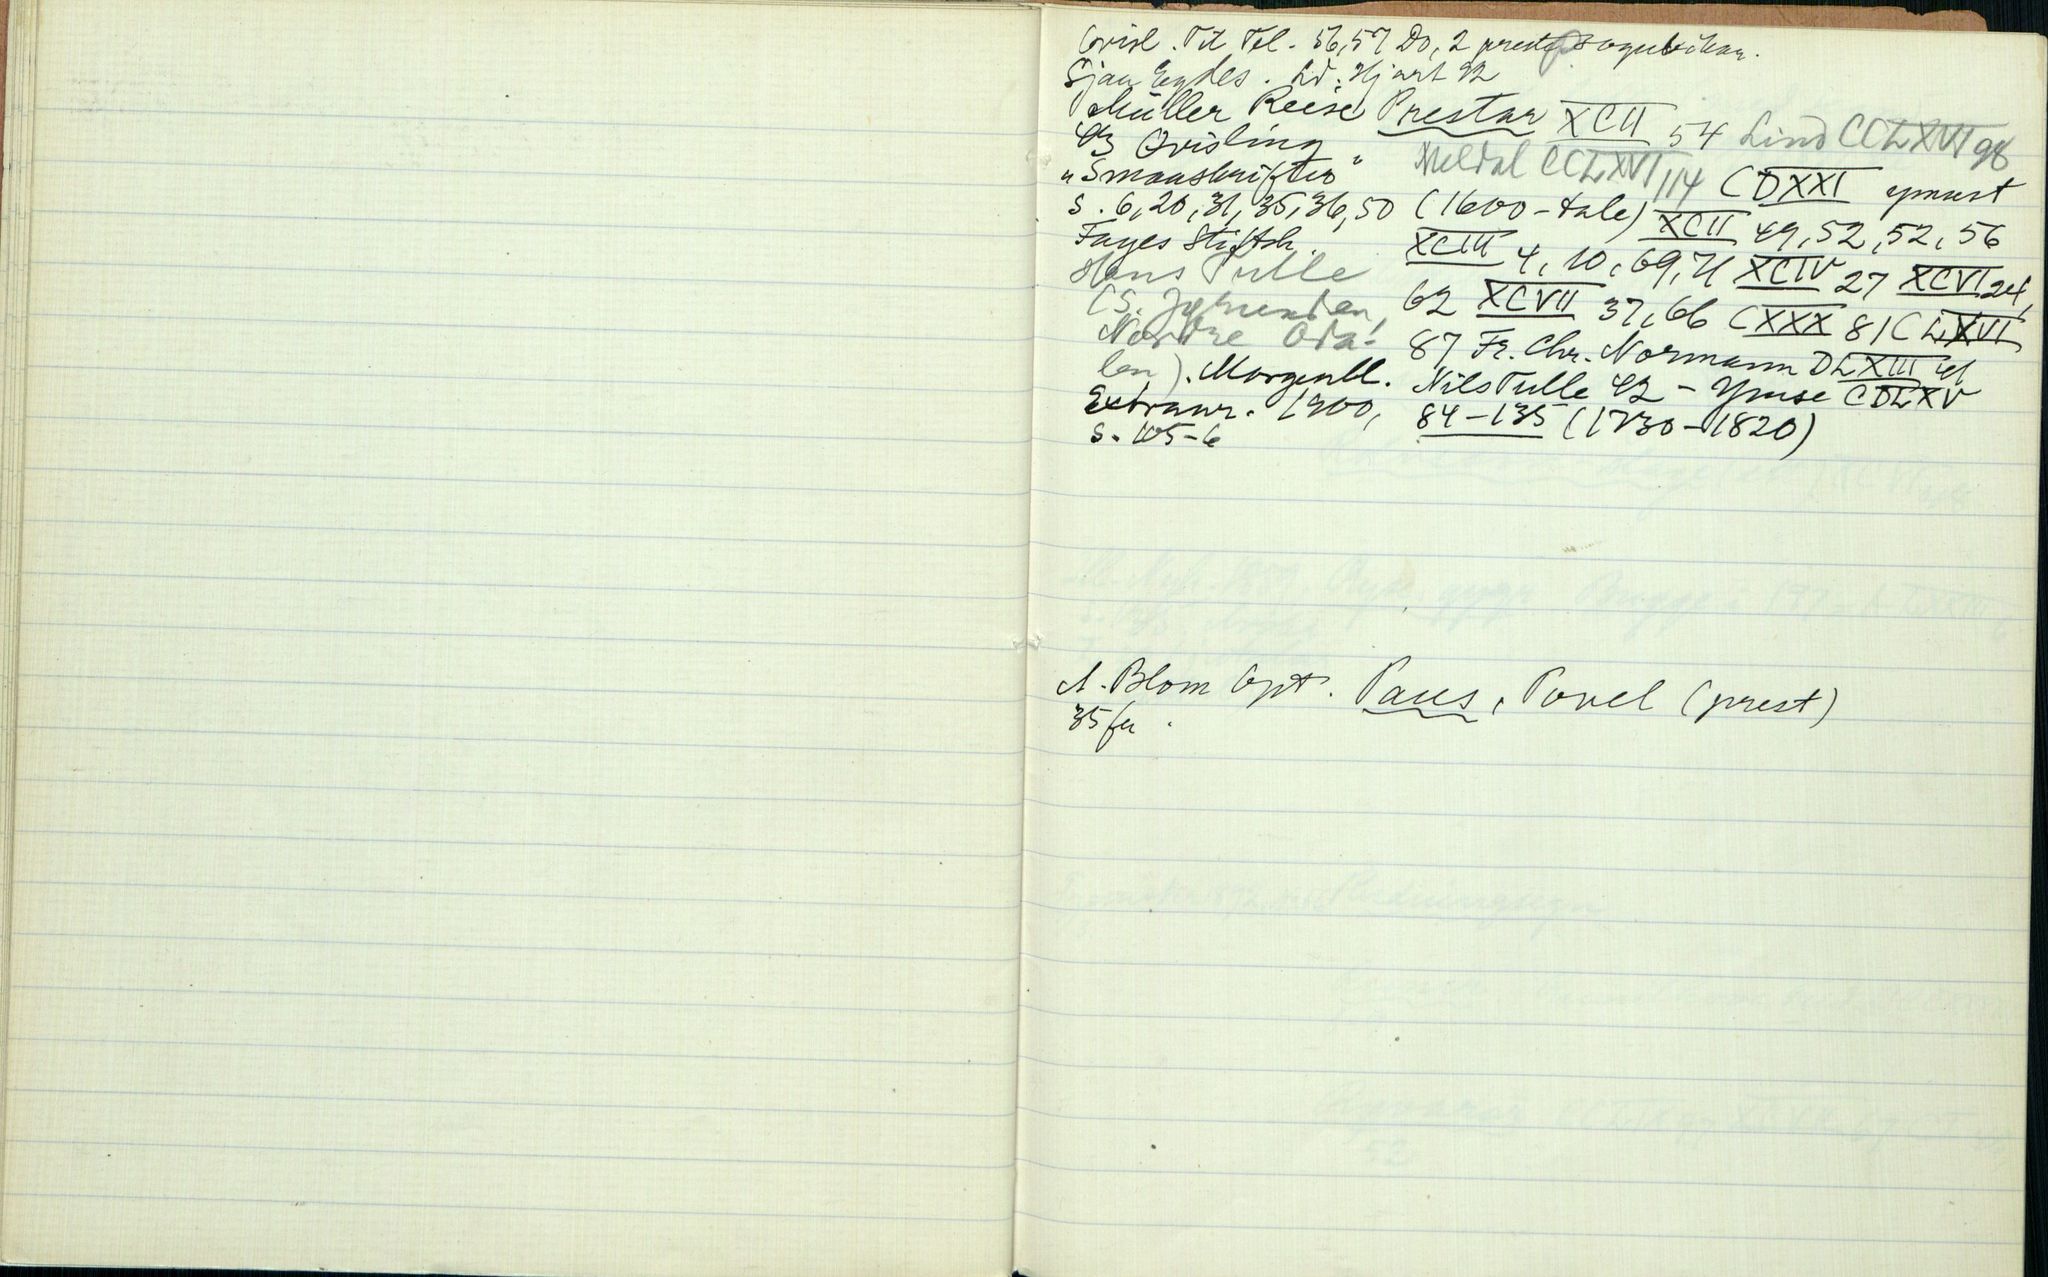 Qvisl. Tit Tel. 56,57 Do, 2 prest
Sjau Eydes. Ld. Hjart 92
Müller Reise Prestar XCII 54 Lind CCLXVI 98
43 Qvisling Meldal CCLXVI 114 CDXXI ymist
"Smaaskrifter"
S. 6, 20, 31, 35, 36, 50 (1600-tale) XCII 49, 52, 52, 56
Fayes Stiftsh. XCIII 4, 10, 69, 71 XCIV 27 XCVI 24,
Hans Tulle 62 XCVII 37, 66 CXXX 81 CLXVI
(S. Nordre Oda- 87 Fr. Chr. Normann DLXIII
len). Morgenbl. Nils Tulle 42 - Ymse CDLXV
Extranr. 1900, 84-135 (1730-1820)
s. 105-6
A. Blom Opt. Paus, Povel (prest)
35 fu